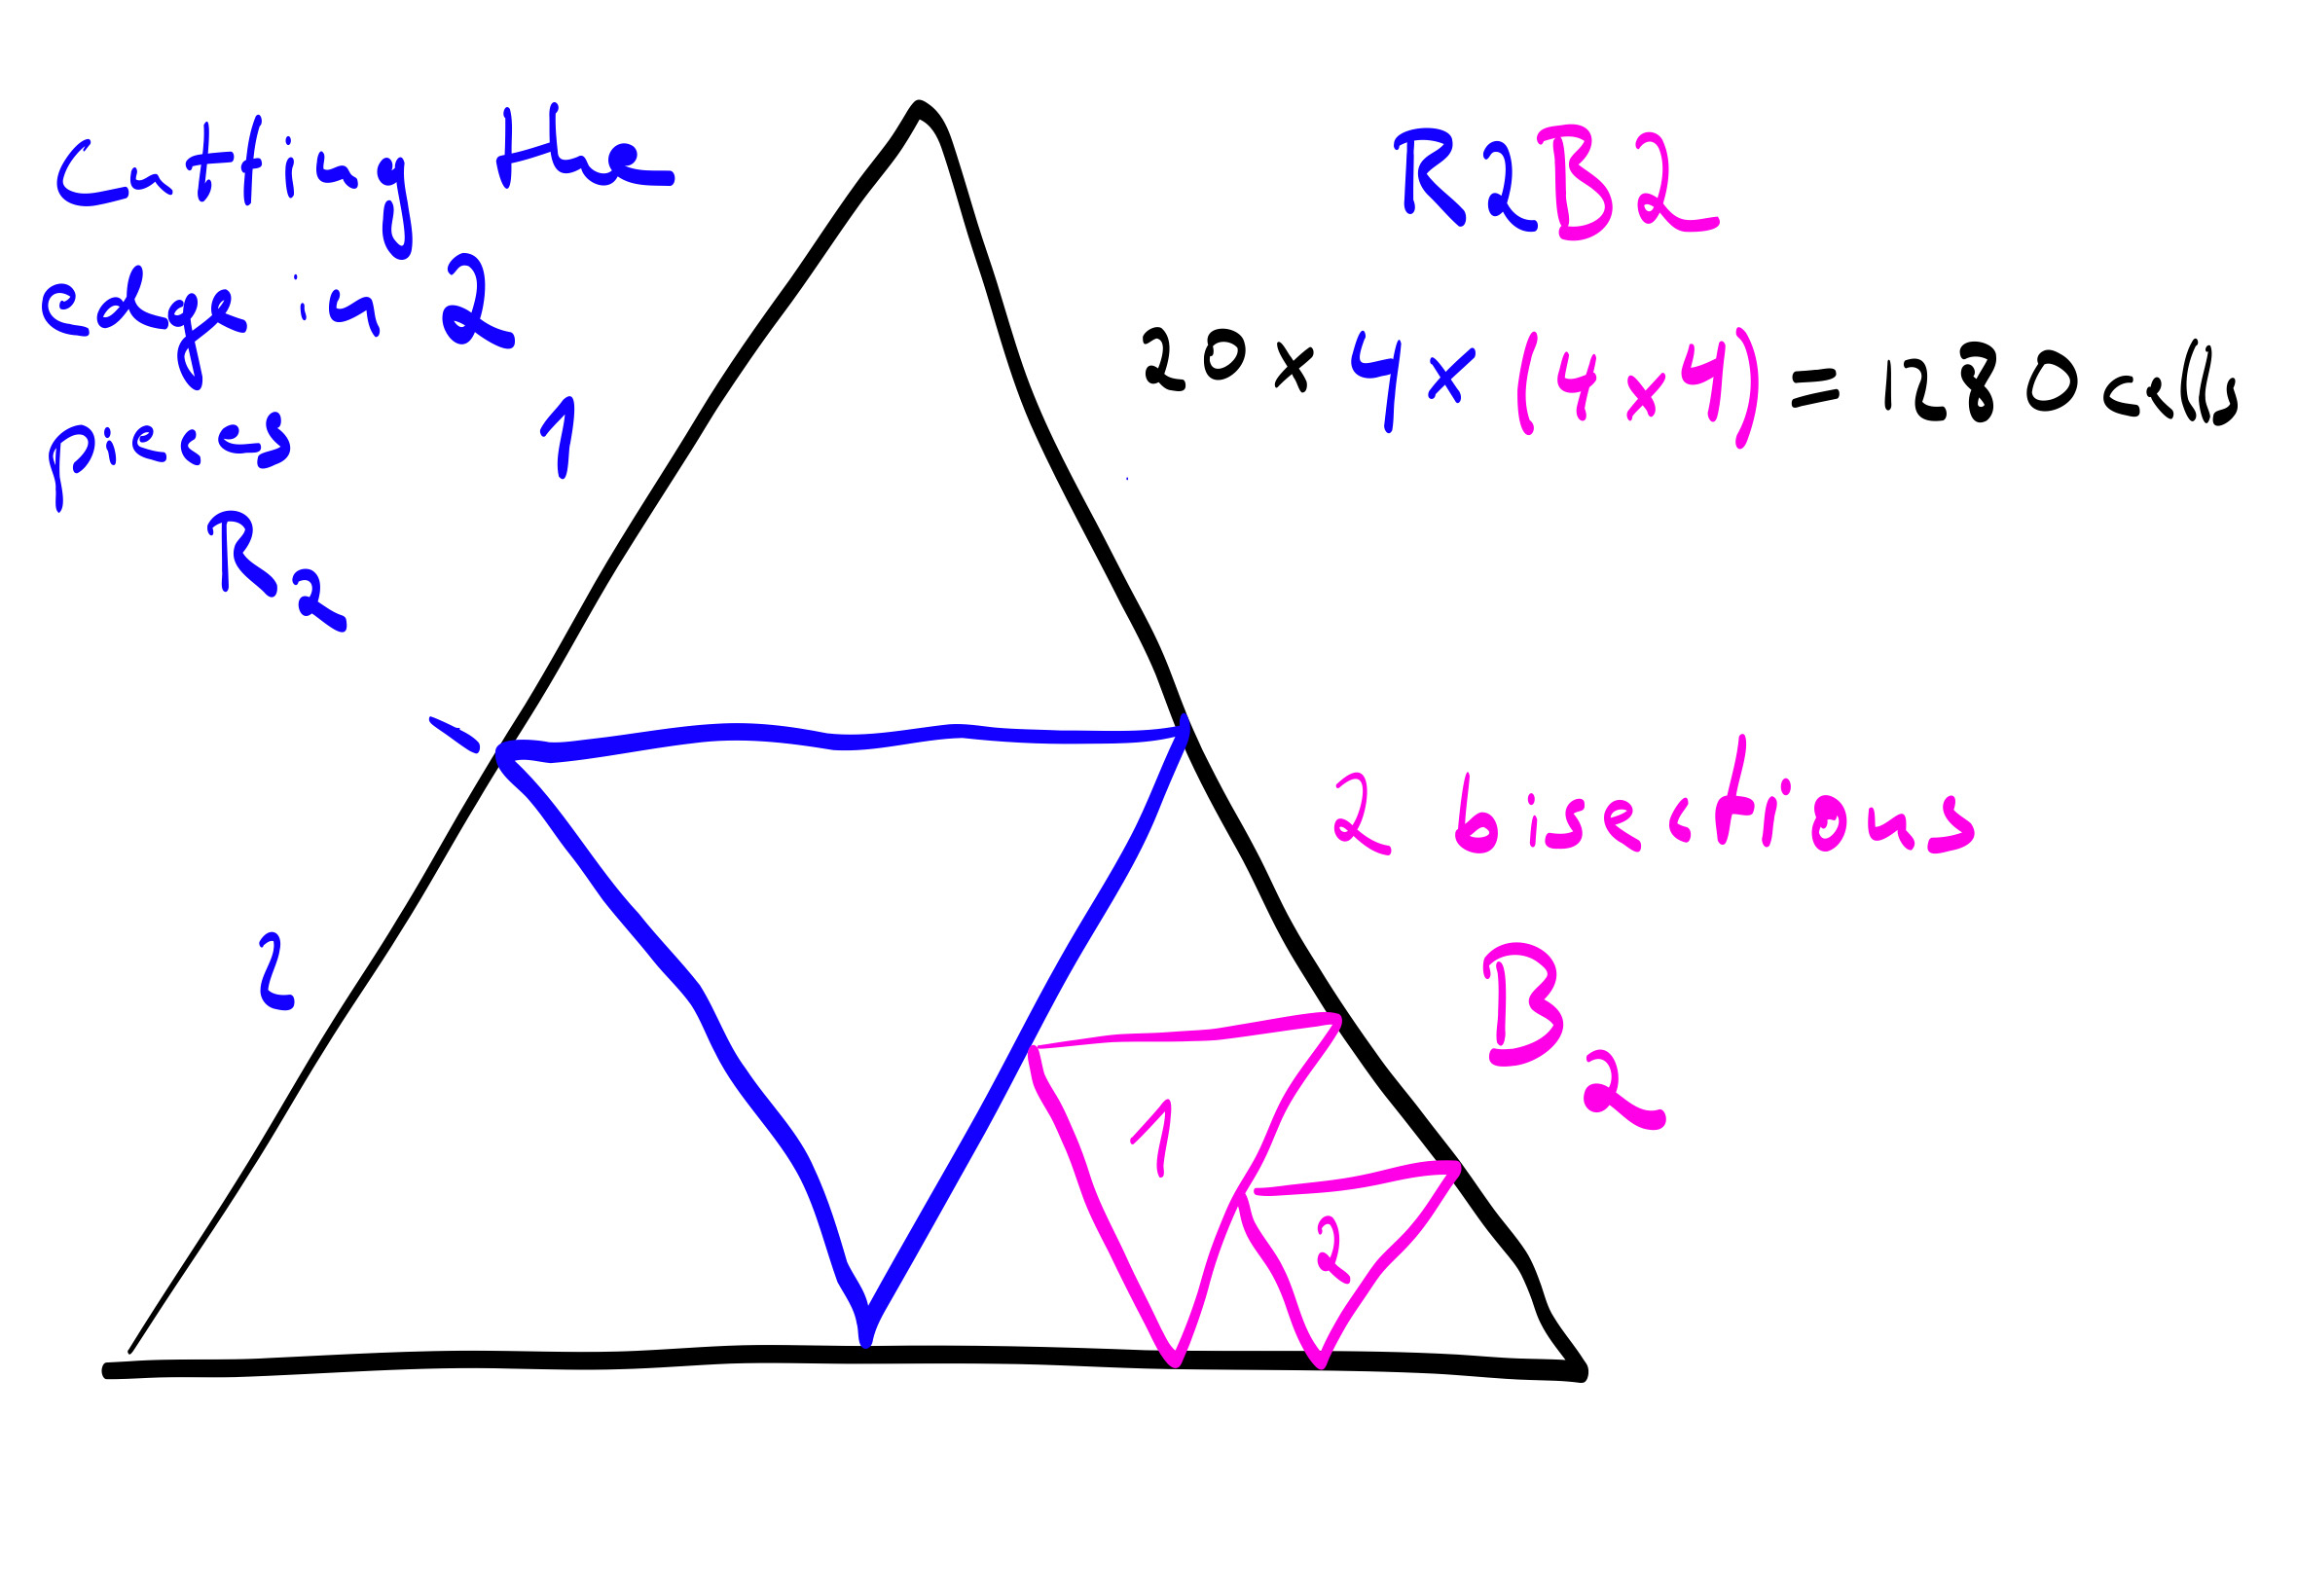 Cutting the
edge in 2
pieces
R2
1
2
R2B2
20 x 4 x (4 x 4) = 1280 cells
2 bisections
B2
1
2